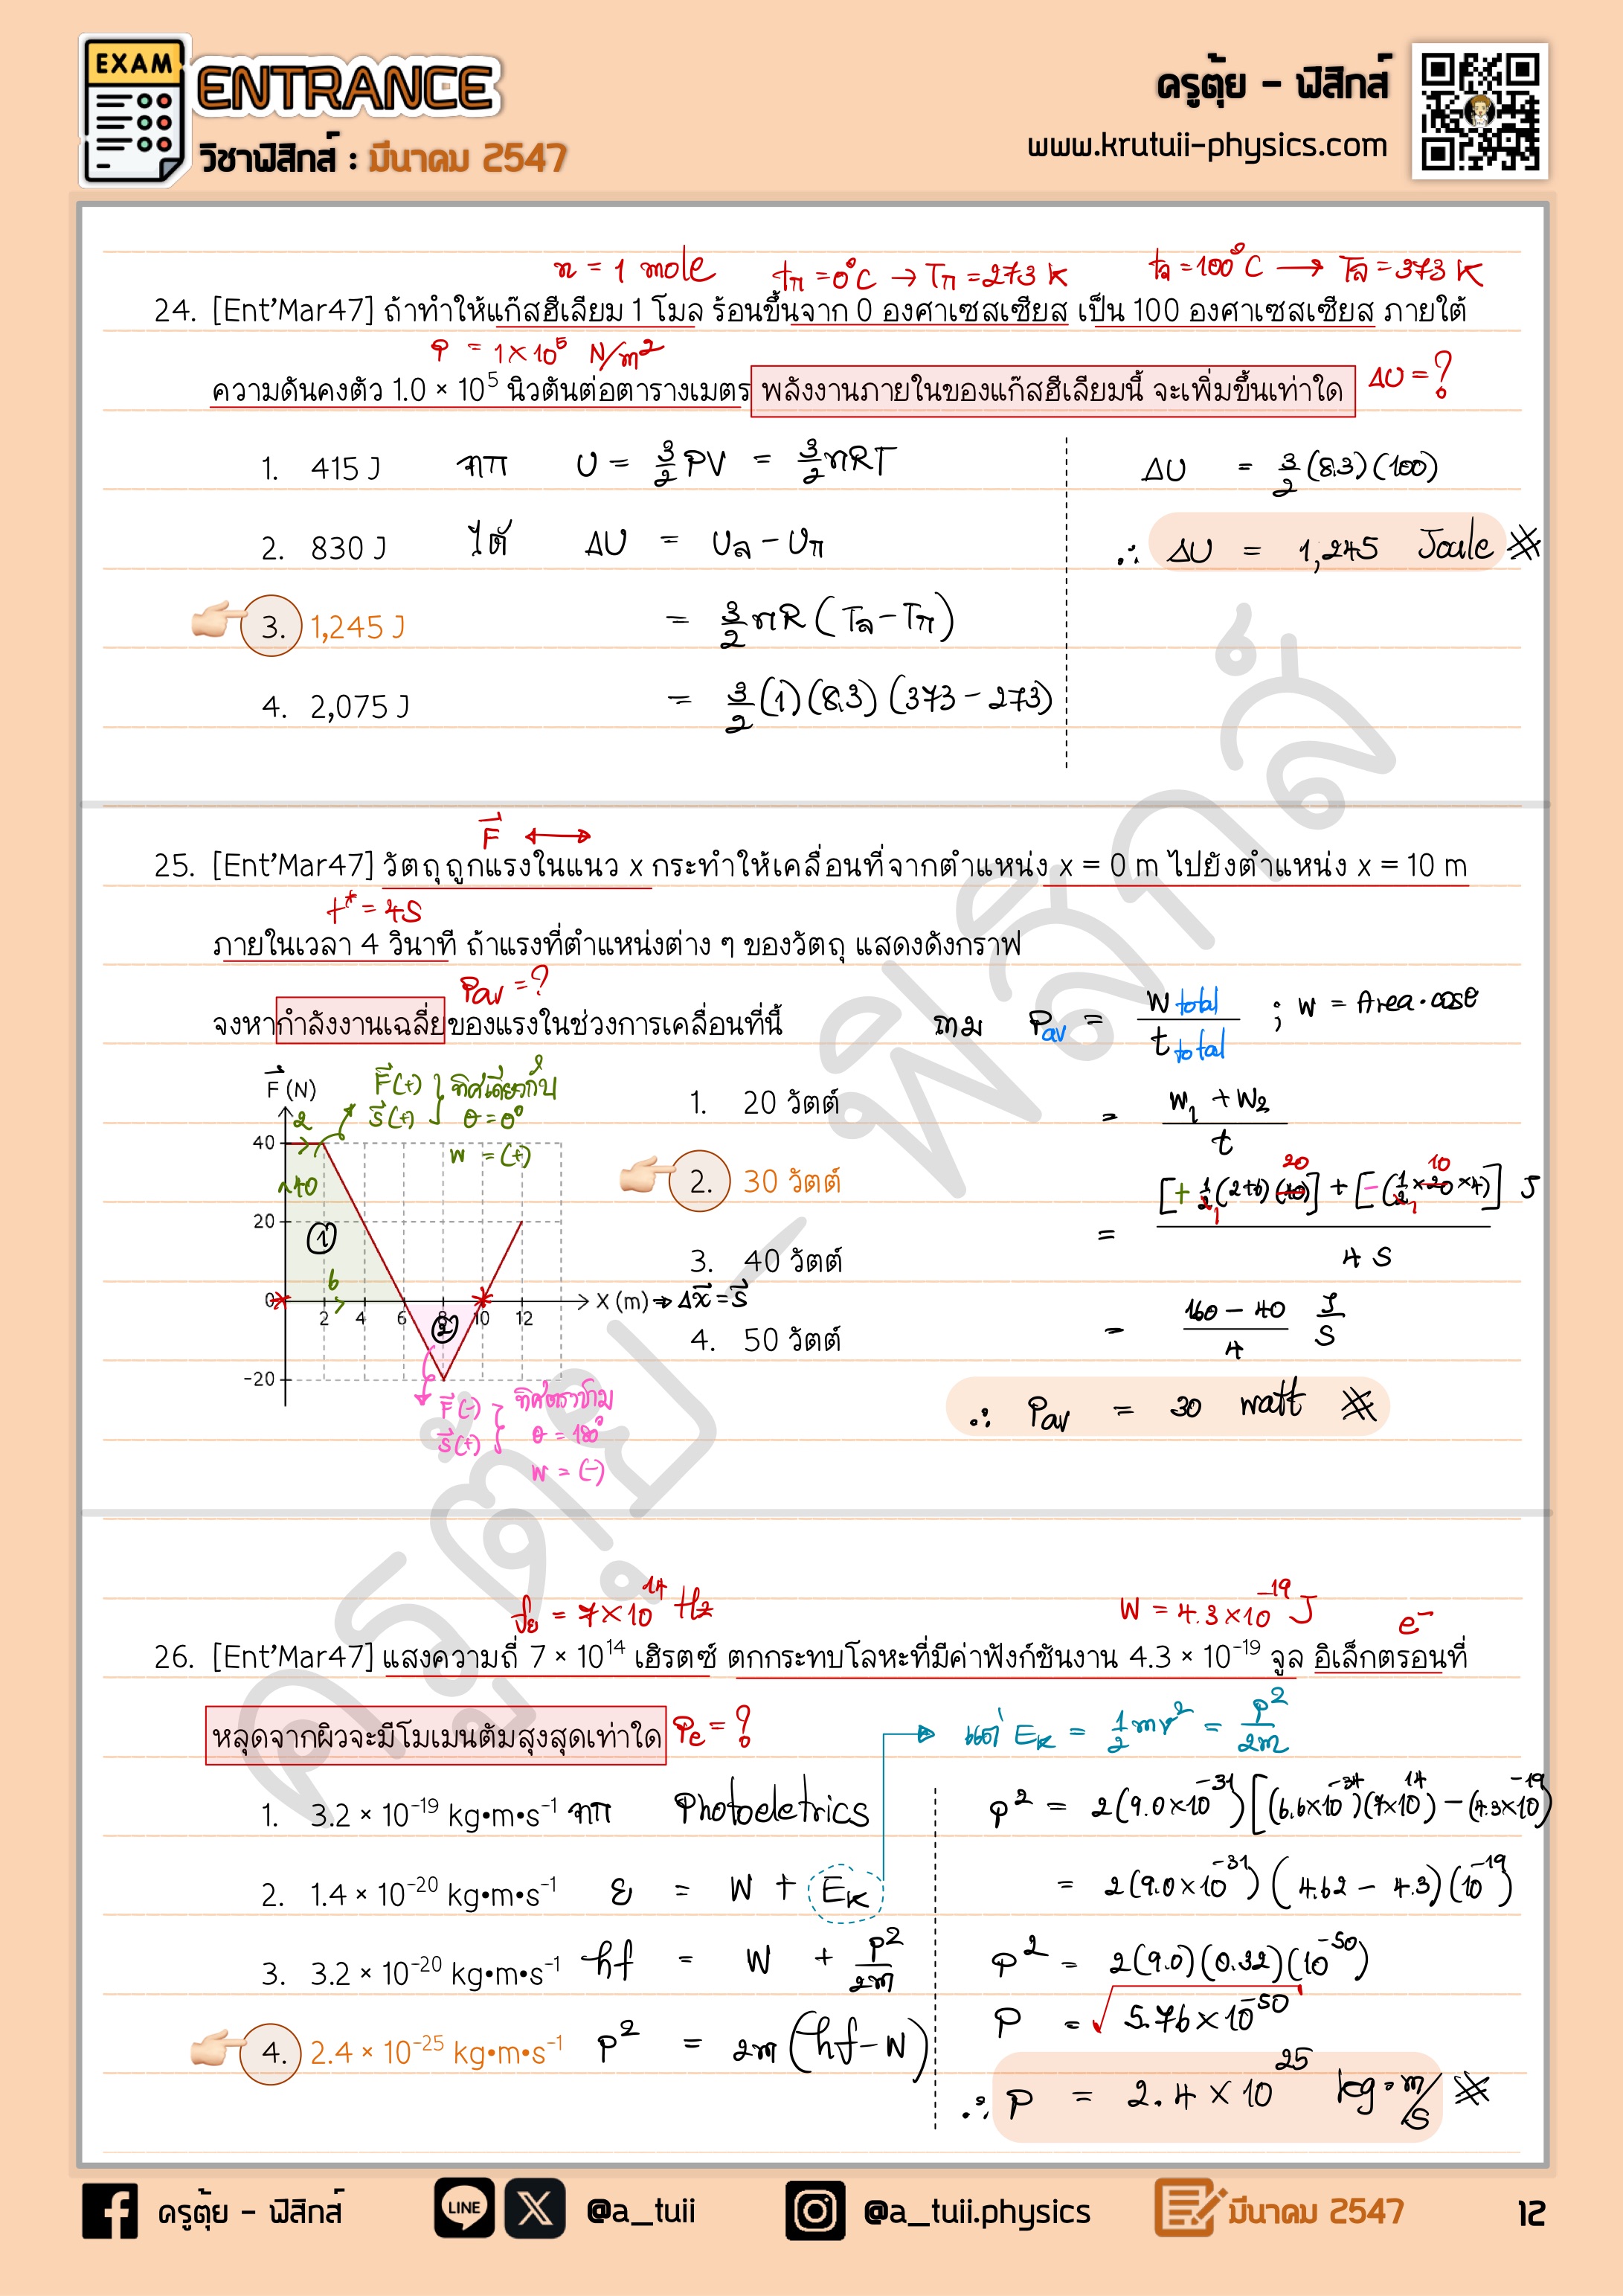 EXAM
ENTRANCE
วิชาฟิสิกส์ : มีนาคม 2547
ครูตุ้ย - ฟิสิกส์
www.krutuii-physics.com
n = 1 mole t_ก = 0°C → T_ก = 273 K t_ล = 100°C → T_ล = 373 K
24. [Ent'Mar47] ถ้าทำให้แก๊สฮีเลียม 1 โมล ร้อนขึ้นจาก 0 องศาเซลเซียส เป็น 100 องศาเซลเซียส ภายใต้
P = 1×10⁵ N/m²
ความดันคงตัว 1.0 × 10⁵ นิวตันต่อตารางเมตร พลังงานภายในของแก๊สฮีเลียมนี้ จะเพิ่มขึ้นเท่าใด ΔU = ?
1. 415 J จาก U = 3/2 PV = 3/2 nRT
2. 830 J ได้ ΔU = U_ล - U_ก
3. 1,245 J = 3/2 nR (T_ล - T_ก)
4. 2,075 J = 3/2 (1)(8.3)(373 - 273)
ΔU = 3/2 (8.3)(100)
∴ ΔU = 1,245 Joule
F
25. [Ent'Mar47] วัตถุถูกแรงในแนว x กระทำให้เคลื่อนที่จากตำแหน่ง x = 0 m ไปยังตำแหน่ง x = 10 m
t* = 4s
ภายในเวลา 4 วินาที ถ้าแรงที่ตำแหน่งต่าง ๆ ของวัตถุ แสดงดังกราฟ
Pav = ?
จงหากำลังงานเฉลี่ยของแรงในช่วงการเคลื่อนที่นี้
F (N)
F(+) } ทิศเดียวกัน
S(+) θ = 0°
W = (+)
2
40
~40
20
①
6
0 2 4 6 8 10 12 X (m) → Δx = s
②
-20
F(-) } ทิศตรงข้าม
S(+) θ = 180°
W = (-)
1. 20 วัตต์
2. 30 วัตต์
3. 40 วัตต์
4. 50 วัตต์
จาก Pav = W total / t total ; W = Area·cosθ
= W₁ + W₂ / t
= [+ 1/2 (2+6)(40)] + [-(1/2 × 20 × 4)] J / 4 S
20 10
= 160 - 40 / 4 J/S
∴ Pav = 30 watt
= 7×10¹⁴ Hz W = 4.3×10⁻¹⁹ J e⁻
26. [Ent'Mar47] แสงความถี่ 7 × 10¹⁴ เฮิรตซ์ ตกกระทบโลหะที่มีค่าฟังก์ชันงาน 4.3 × 10⁻¹⁹ จูล อิเล็กตรอนที่
หลุดจากผิวจะมีโมเมนตัมสูงสุดเท่าใด Pe = ?
แต่ E_K = 1/2 mv² = P²/2m
1. 3.2 × 10⁻¹⁹ kg•m•s⁻¹ จาก Photoeletrics
2. 1.4 × 10⁻²⁰ kg•m•s⁻¹ ε = W + E_K
3. 3.2 × 10⁻²⁰ kg•m•s⁻¹ hf = W + P²/2m
4. 2.4 × 10⁻²⁵ kg•m•s⁻¹ P² = 2m (hf - W)
P² = 2(9.0×10⁻³¹) [(6.6×10⁻³⁴)(7×10¹⁴) - (4.3×10⁻¹⁹)
= 2(9.0×10⁻³¹) (4.62 - 4.3)(10⁻¹⁹)
P² = 2(9.0)(0.32)(10⁻⁵⁰)
P = √5.76×10⁻⁵⁰
∴ P = 2.4 × 10²⁵ kg·m/s
ครูตุ้ย - ฟิสิกส์
ครูตุ้ย - ฟิสิกส์
LINE
@a_tuii
@a_tuii.physics
มีนาคม 2547
12